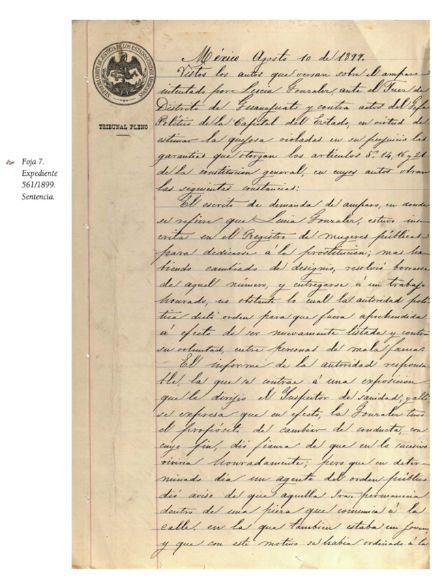 Foja 7.
Expediente
561/1899.
Sentencia.
TRIBUNAL PLENO
México Agosto 10 de 1899.
Vistos los autos que versan sobre el amparo
intentado por Lucía González, ante el Juez de
Distrito de Guanajuato y contra actos del Jefe
Político de la Capital del Estado, en virtud de
estimar la quejosa violadas en su perjuicio las
garantías que otorgan los artículos 5º, 14, 16 y 21
de la constitución general, en cuyos autos obran
las siguientes constancias:
El escrito de demanda de amparo, en donde
se refiere que Lucía González, estuvo ins-
crita en el Registro de mugeres públicas
para dedicarse á la prostitución; mas ha-
biendo cambiado de designio, resolvió borrarse
de aquell número, y entregarse á un trabajo
honrado, no obstante lo cual la autoridad polí-
tica dictó orden para que fuera aprehendida
á efecto de ser nuevamente listada y contra
su voluntad, entre personas de mala fama
El informe de la autoridad responsa-
ble, la que se contrae á una exposición
que le dirijió el Inspector de sanidad, y allí
se expresa que en efecto, la González tuvo
el propósito de cambiar de conducta, con
cuyo fin, dió fianza de que en lo sucesivo
viviría honradamente; pero que en deter-
minado día un agente del orden público
dió aviso de que aquella permanecía
dentro de una pieza que comunica á la
calle, en la que también estaba un joven
y que con este motivo se había ordenado á la